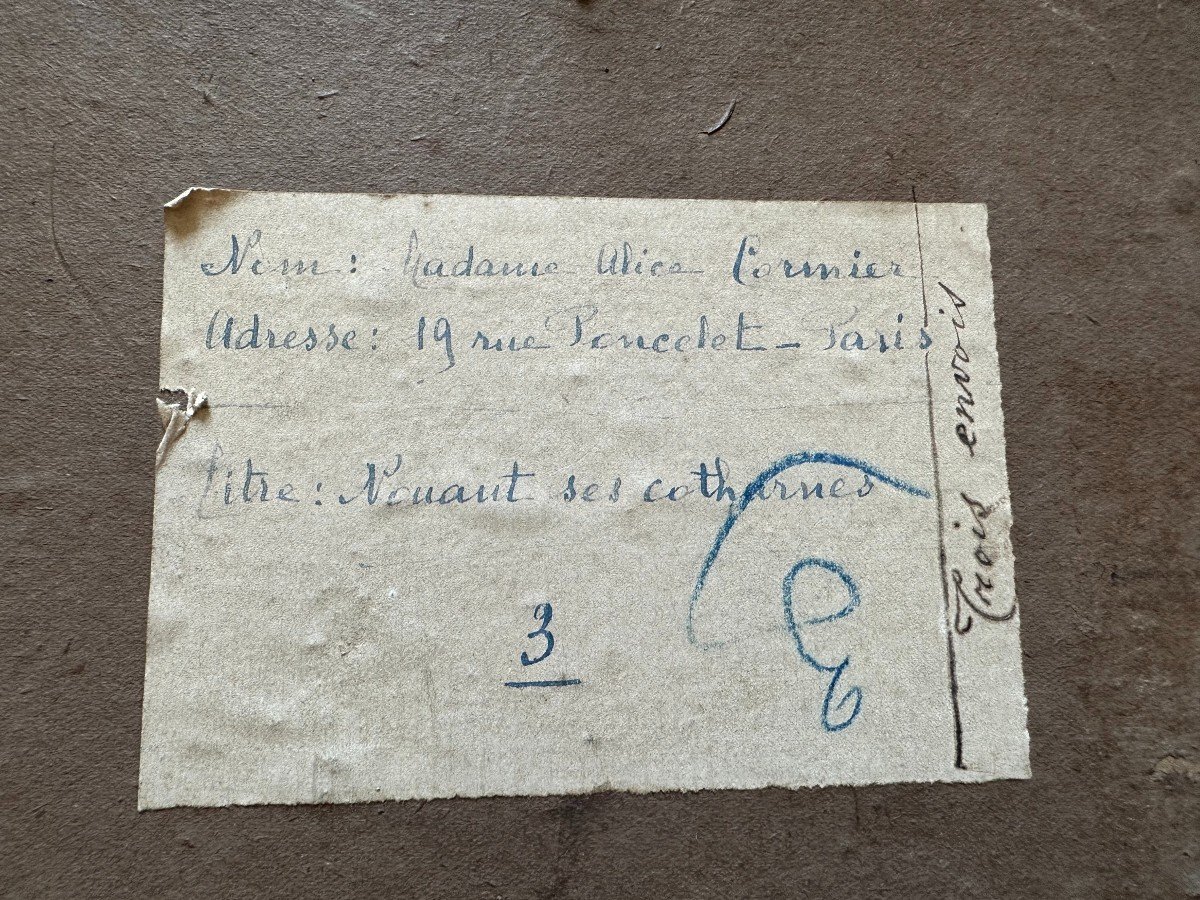 Nom : Madame Alice Cormier
Adresse : 19 rue Poncelet - Paris
Titre : Nouant ses cothurnes
3
Trois envois